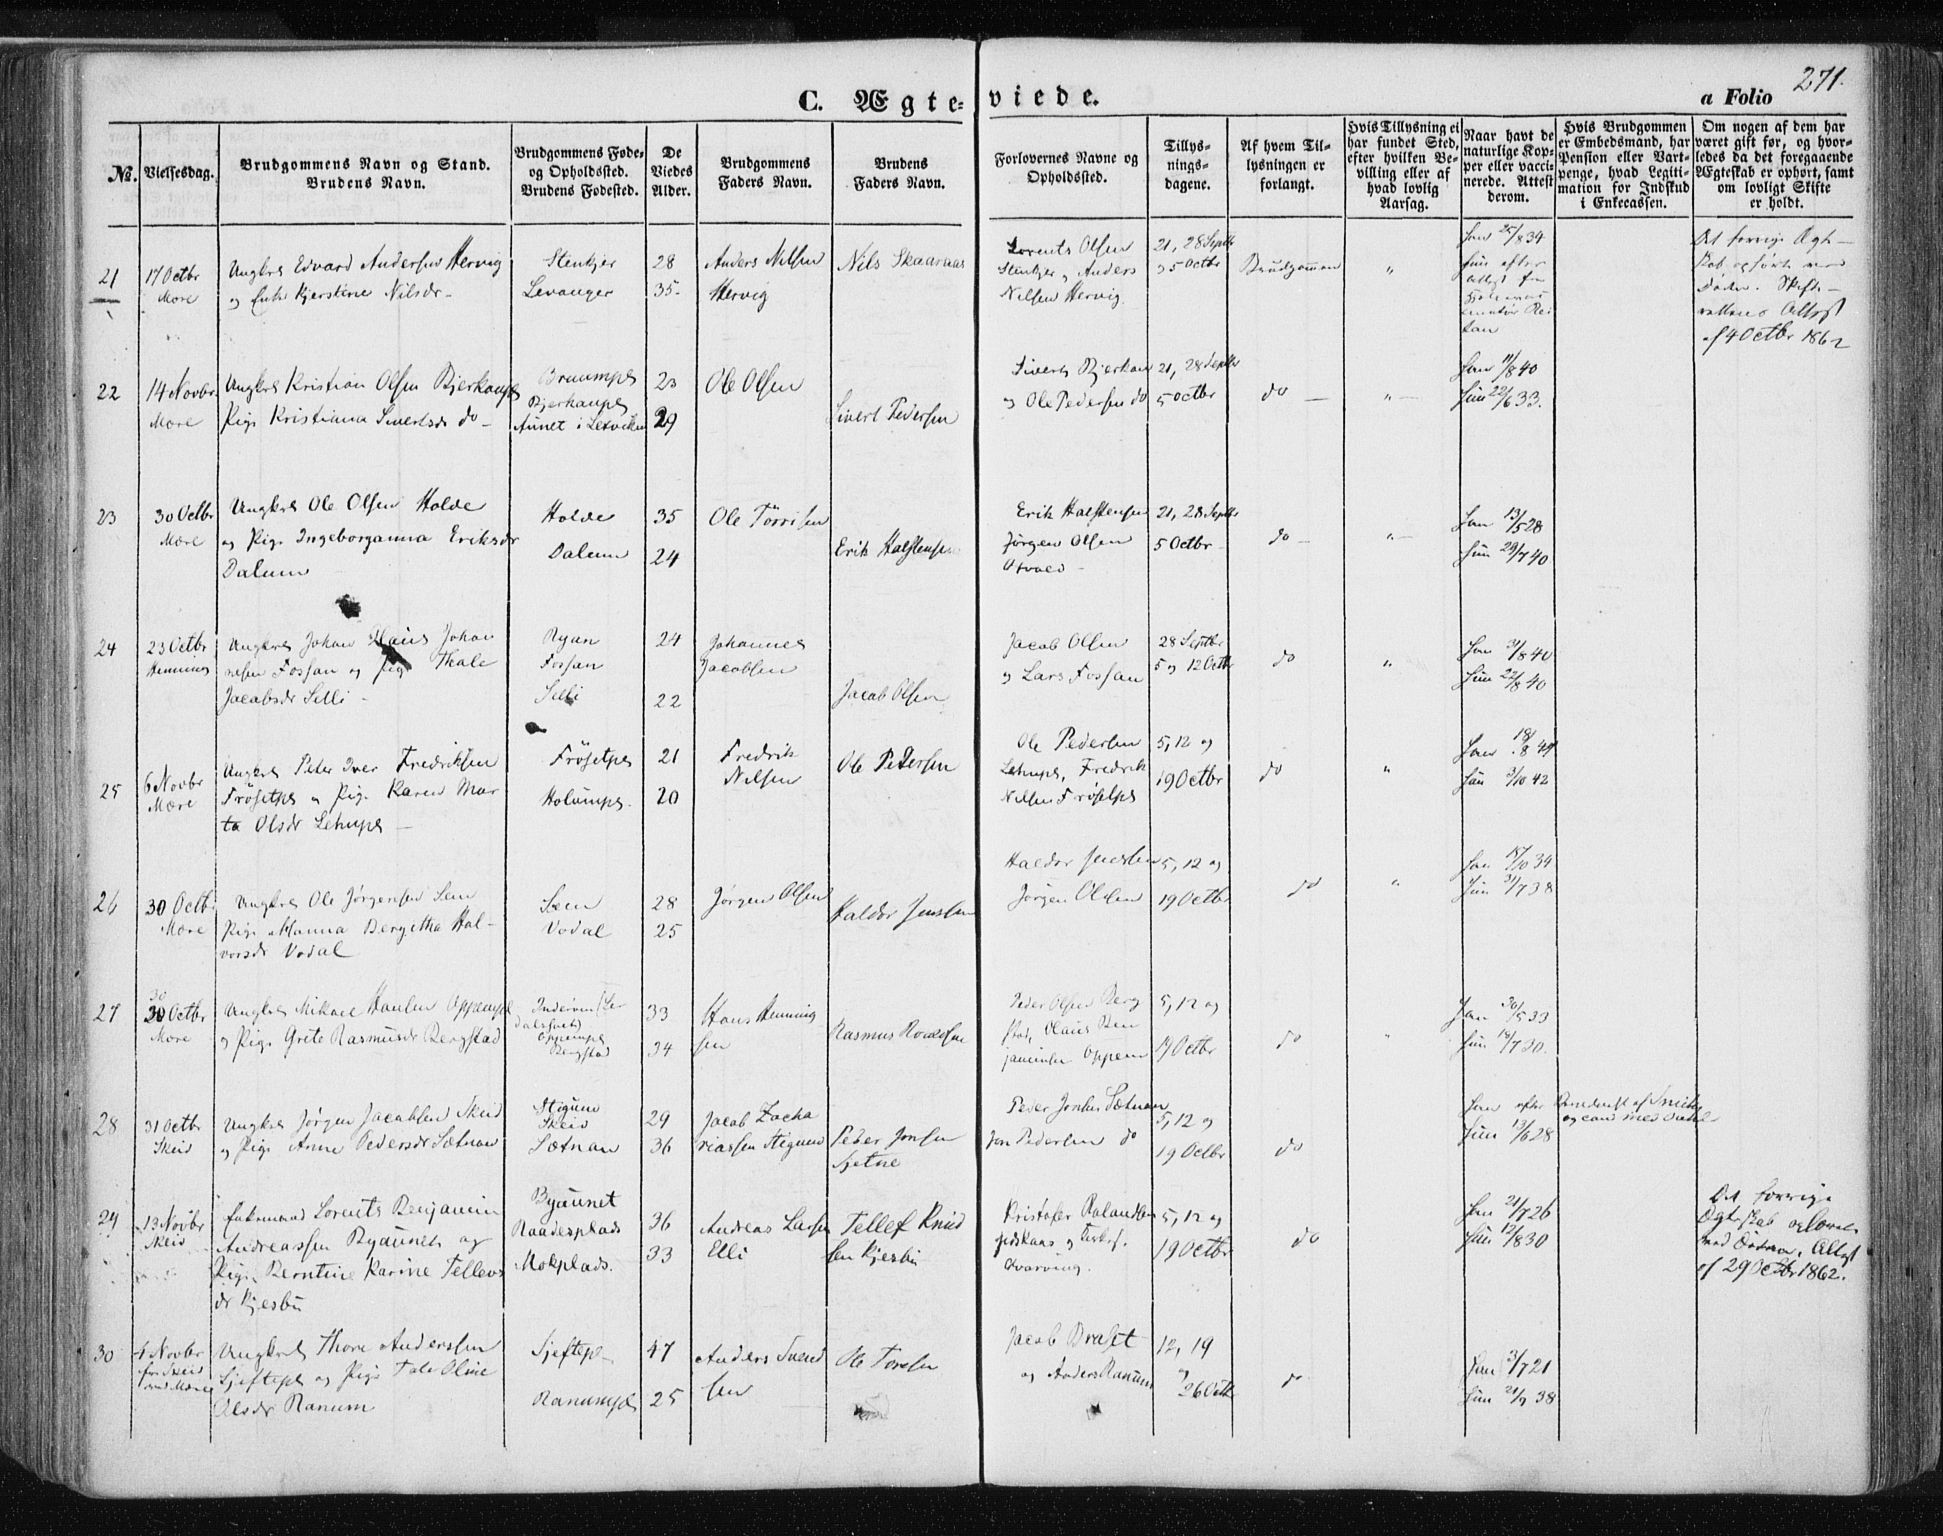 271.
C. Ægte-viede.
a Folio
No.
Vielsesdag.
Brudgommens Navn og Stand.
Brudens Navn.
Brudgommens Føde-
og Opholdssted.
Brudens Fødested.
De
Viedes
Alder.
Brudgommens
Faders Navn.
Brudens
Faders Navn.
Forlovernes Navne og
Opholdssted.
Tillys-
nings-
dagene.
Af hvem Til-
lysningen er
forlangt.
Hvis Tillysning ei
har fundet Sted,
efter hvilken Be-
villing eller af
hvad lovlig
Aarsag.
Naar havt de
naturlige Kop-
per eller vacci-
nerede. Attest
derom.
Hvis Brudgommen
er Embedsmand, har
Pension eller Vart-
penge, hvad Legiti-
mation for Indskud
i Enkecassen.
Om nogen af dem har
været gift før, og hvor-
ledes da det foregaaende
Ægteskab er ophørt, samt
om lovligt Skifte
er holdt.
21
17 Octbr
Mære
Ungkrl Edvard Andersen Hervig
og Enke Kjerstine Nilsdr
Stenkjer
Levanger
28
35
Anders Nilsen
Hervig
Nils Skaaraas
Lorents Olsen
Stenkjer og Anders
Nilsen Hervig
21, 28 Septbr
5 Octbr
Brudgommen
"
Han 25/8 34
Hun efter
Attest fra
Det forrige Ægte-
skab ophørt ved
Døden. Skifte-
rettens Attest
af 4 Octbr 1862
22
14 Novbr
Mære
Ungkrl Kristian Olsen Bjerkanpl
Pige Kristiana Sivertsdr do
Bruumpl
Bjerkanpl
Aunet i Leksviken
23
29
Ole Olsen
Sivert Pedersen
Sivert Bjerkan
og Ole Pedersen do
21, 28 Septbr
5 Octbr
do
"
Han 11/8 40
Hun 22/6 33.
23
30 Octbr
Mære
Ungkrl Ole Olsen Holde
og Pige Ingeborganna Eriksdr
Dalum
Holde
Dalum
35
24
Ole Tørrisen
Erik Halstensen
Erik Halstensen
Jørgen Olsen
21, 28 Septbr
5 Octbr
do
"
Han 13/5 28
Hun 29/7 40
24
23 Octbr
Henning
Ungkrl Johan Claus Johan
nesen Fossan og Pige Thale
Jacobsdr Selli
Ryan
Fossan
Selli
24
22
Johannes
Jacobsen
Jacob Olsen
Jacob Olsen
og Lars Fossan
28 Septbr
5 og 12 Octbr
do
"
Han 31/8 40
Hun 22/8 40
25
6 Novbr
Mære
Ungkrl Peter Iver Fredriksen
Frøsetpl og Pige Karen Mar
ta Olsdr Lehnpl
Frøsetpl
Holumpl.
21
20
Fredrik
Nilsen
Ole Petersen
Ole Pedersen
Lehnpl, Fredrik
Nilsen Frøsetpl
5, 12 og
19 Octbr
do
"
Han 18/8 44
Hun 3/10 42
26
30 Octbr
Mære
Ungkrl Ole Jørgensen Sem
Pige Hanna Bergitha Hal-
vorsdr Vodal
Sem
Vodal
28
25
Jørgen Olsen
Haldor Jenssen
Haldor Jenssen
Jørgen Olsen
5, 12 og
19 Octbr
do
"
Han 15/10 34
Hun 31/7 38
27
30
Octbr
Mære
Ungkrl Mikael Hansen Oppempl
og Pige Grete Rasmusdr Bergstad
Inderøen
Oppempl
Bergstad
33
34
Hans Henning
sen
Rasmus Roaldsen
Peder Olsen Berg
stad, Olaus Ben
jaminsen Oppem
5, 12 og
19 Octbr
do
Han 30/5 33
Hun 18/7 30.
28
31 Octbr
Skeid
Ungkrl Jørgen Jacobsen Skeid
og Pige Anne Pedersdr Sætnan
Stigum
Skeid
Sætnan
29
36
Jacob Zacha
riassen Stigum
Peder Jonsen
Sjetne
Peder Jonsen Sætnan
Jon Pedersen do
5, 12 og
19 Octbr
do
Han efter
Hun 13/6 28
29
13 Novbr
Skeid
Enkemand Lorents Benjamin
Andreassen Byaunet og
Pige Berntine Karine Tellevs
dr Kjesbu
Byaunet
Raadesplads
Mokplads.
36
33
Andreas Larsen
Elli
Tellef Knud
sen Kjesbu
Kristofer Rolandsen
5, 12 og
19 Octbr
do
Han 21/7 26
Hun 12/8 30
Det forrige
Ægteskab opløst
ved Døden. Attest
af 29 Octbr 1862.
30
4 Novbr
for Skeid
ved Mære
Ungkrl Thore Anderssen
Sjeftepl og Pige Tale Oline
Olsdr Ranum
Sjeftepl
Ranumpl
47
25
Anders Svend
sen
Ole Toresen
Jacob Braset
og Anders Ranum
12, 19
og
26 Octbr
do
Han 3/7 21
Hun 21/9 38